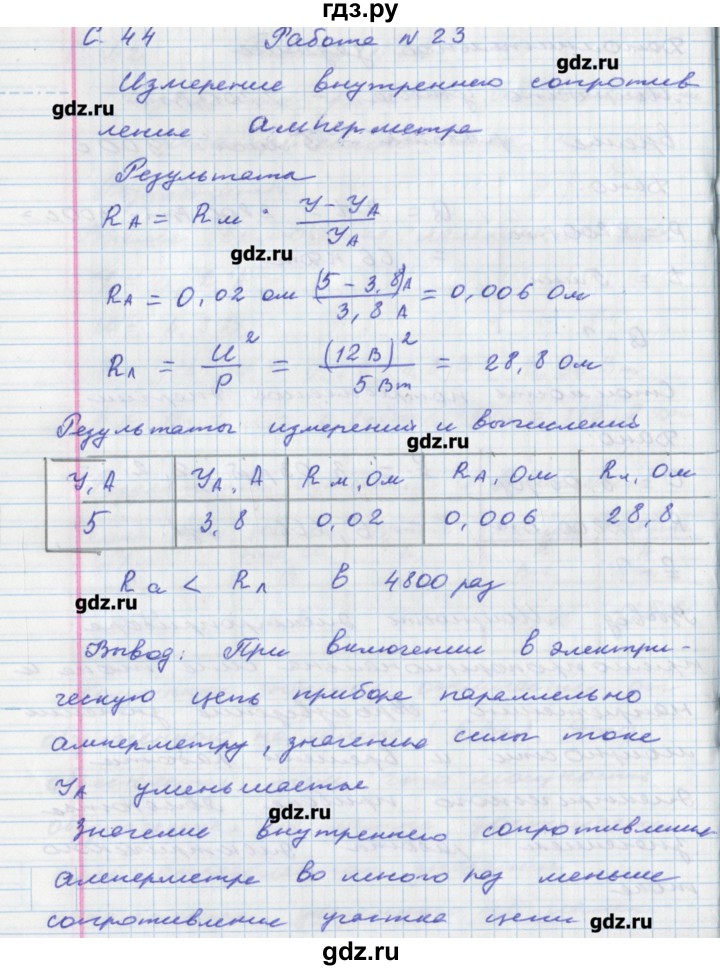 гдз.ру
С. 44 Работа N 23
gdz.ru
Измерение внутреннего сопротив
gdz.ru
ление амперметра
Результата
R_A = R_м · (I - I_A) / I_A
gdz.ru
R_A = 0,02 Ом (5 - 3,8)А / 3,8 А = 0,006 Ом
R_Л = U² / P = (12 В)² / 5 Вт = 28,8 Ом
Результаты измерений и вычислений
gdz.ru
I, А I_A, А R_м, Ом R_A, Ом R_л, Ом
5 3,8 0,02 0,006 28,8
Rа < R_л в 4800 раз
gdz.ru
Вывод: При включении в электри-
ческую цепь прибора параллельно
амперметру, значению силы тока
I_A уменьшается
gdz.ru
Значение внутреннего сопротивления
амперметра во много раз меньше
сопротивления участка цепи
gdz.ru
gdz.ru